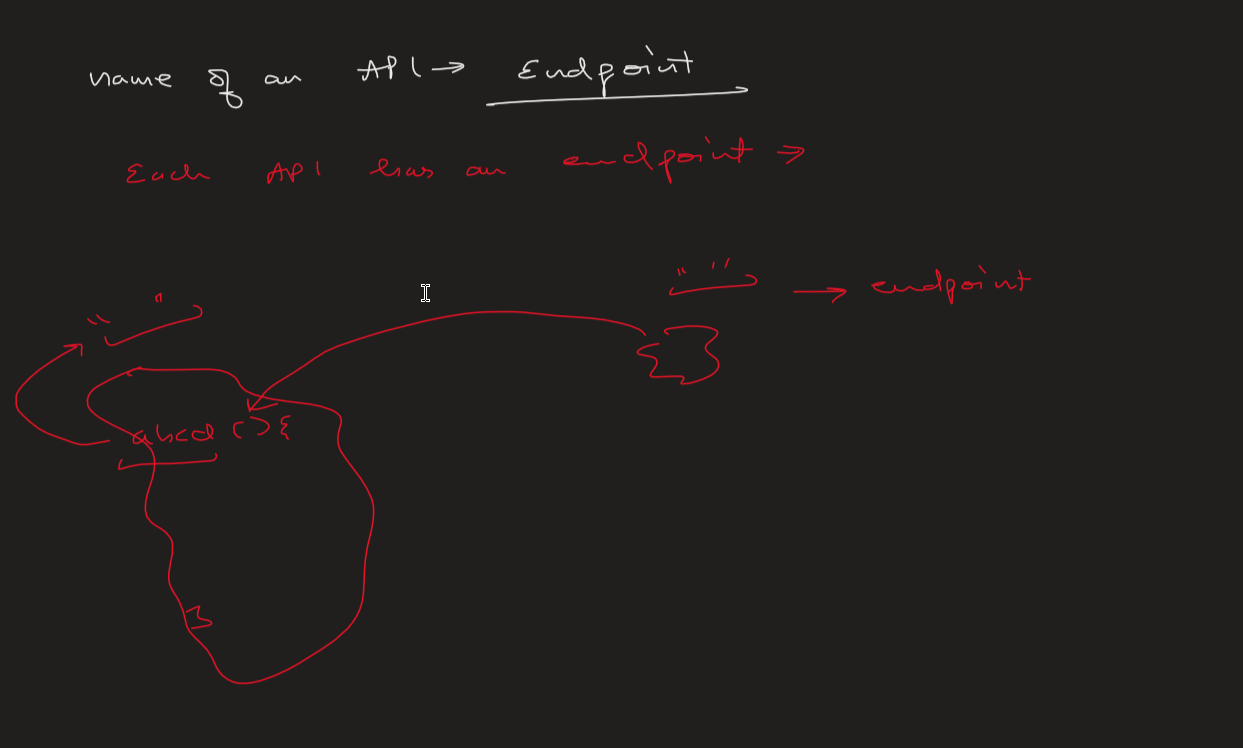 name of an API → Endpoint
Each API has an endpoint →
" " → endpoint
" "
abcd () {
}